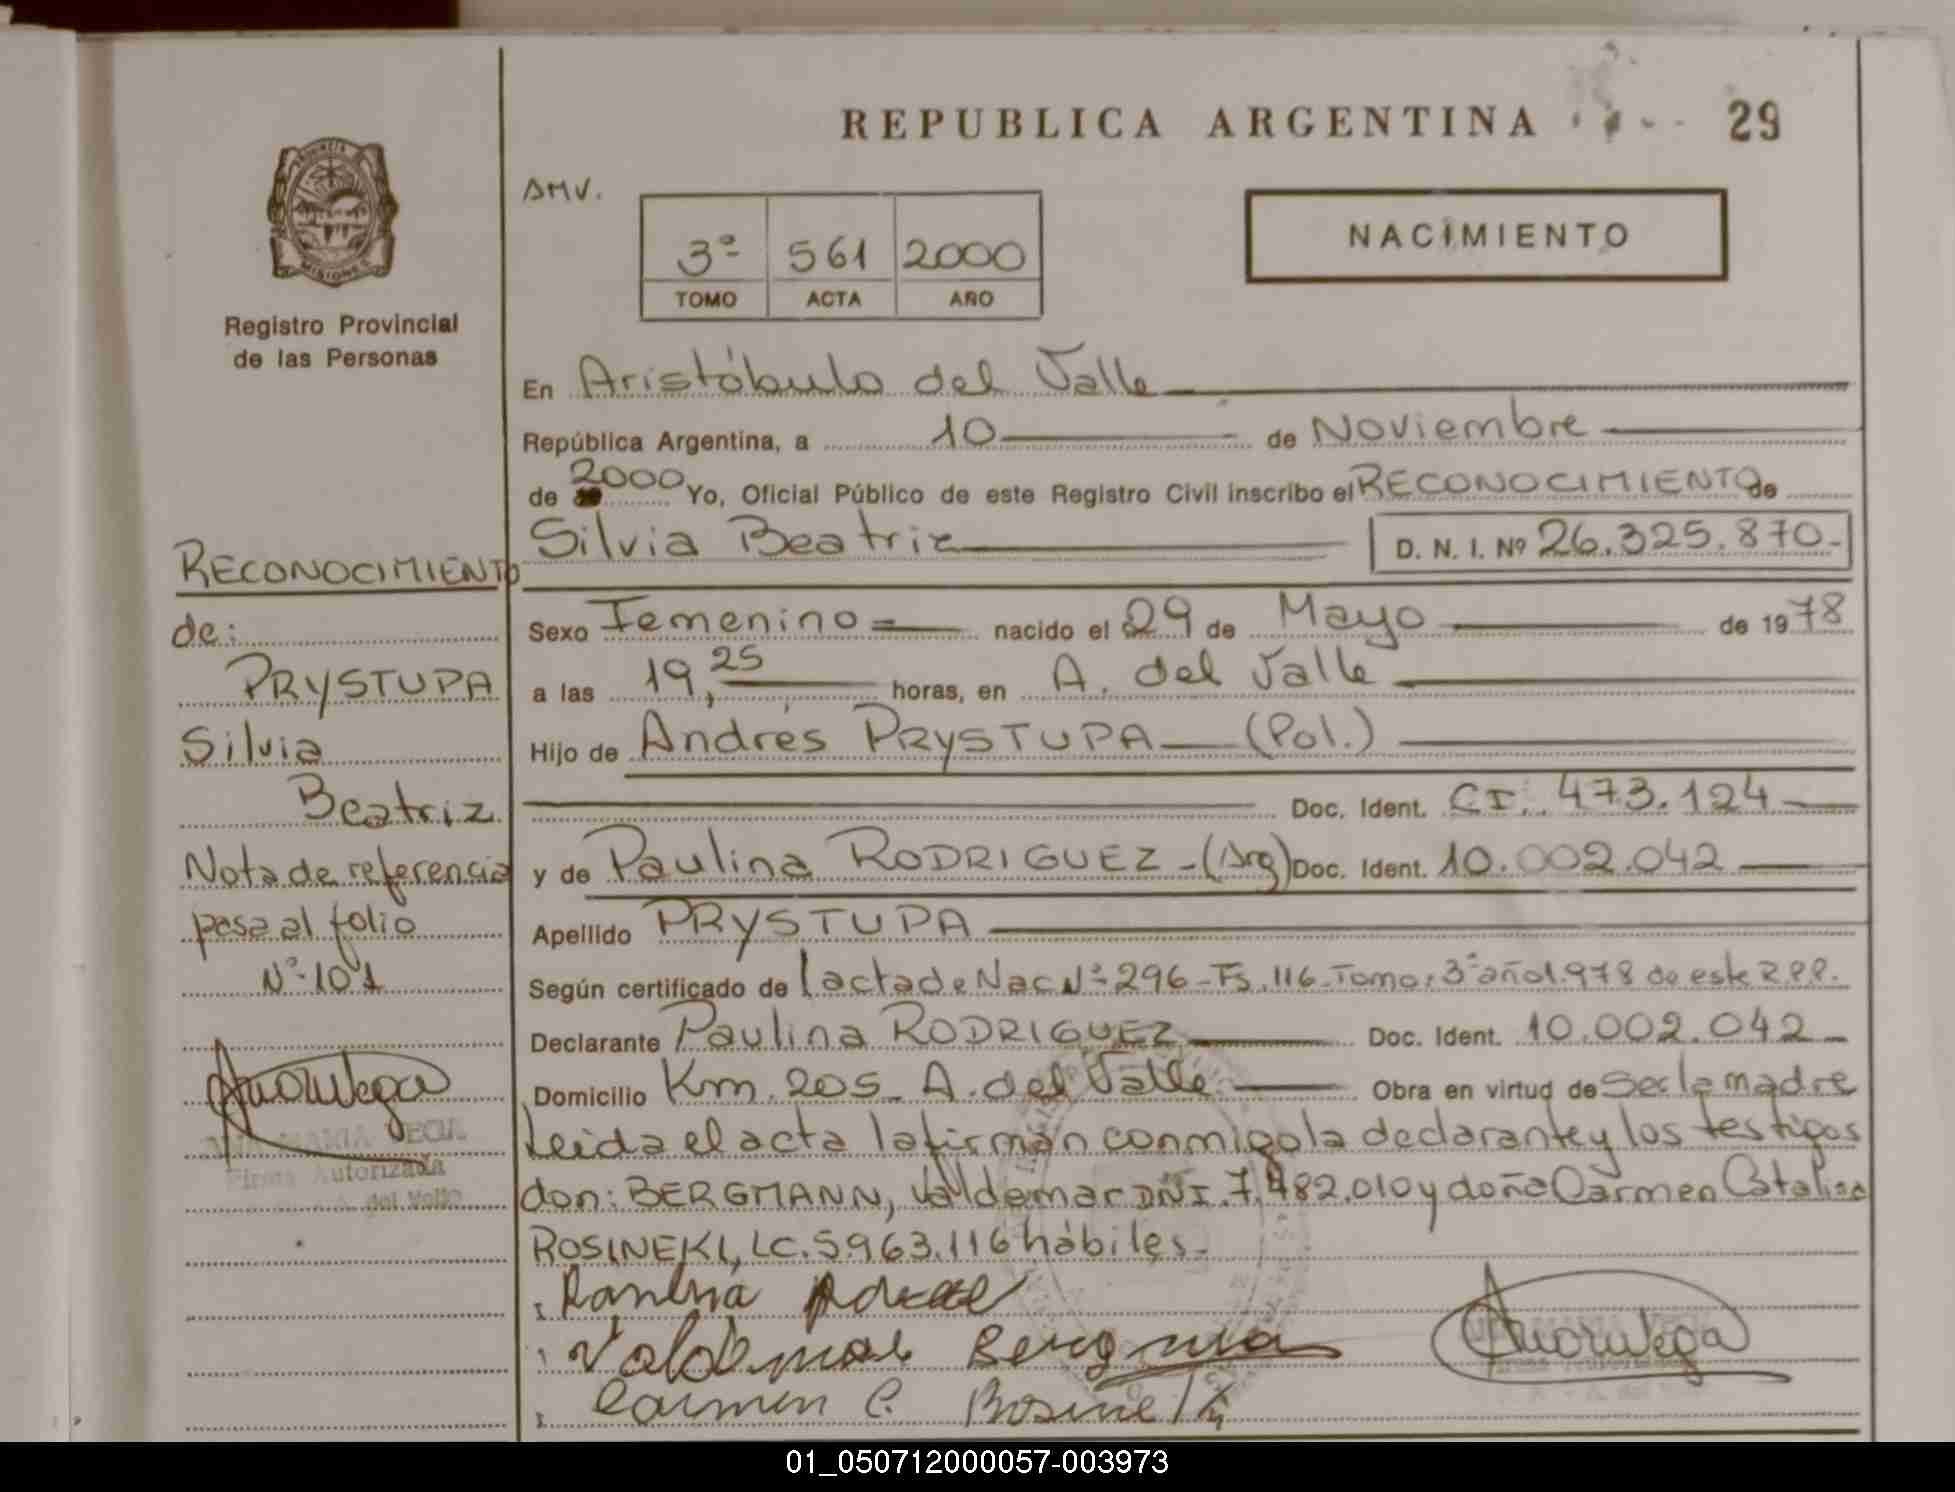 REPUBLICA ARGENTINA
29
PROVINCIA DE
MISIONES
Registro Provincial
de las Personas
3º 561 2000
TOMO ACTA AÑO
NACIMIENTO
En Aristóbulo del Valle
República Argentina, a 10 de Noviembre
de 2000 Yo, Oficial Público de este Registro Civil inscribo el RECONOCIMIENTO de
Silvia Beatriz D. N. I. Nº 26.325.870.-
Sexo Femenino nacido el 29 de Mayo de 1978
a las 19,25 horas, en A. del Valle
Hijo de Andrés PRYSTUPA (Pol.)
Doc. Ident. CI. 473.124
y de Paulina RODRIGUEZ -(Arg) Doc. Ident. 10.002.042
Apellido PRYSTUPA
Según certificado de l acta de Nac Nº 296-Fs.116-Tomo: 3º año 1.978 de este R.P.P.
Declarante Paulina RODRIGUEZ Doc. Ident. 10.002.042
Domicilio Km. 205- A. del Valle Obra en virtud de Ser la madre
Leida el acta la firman conmigo la declarante y los testigos
don: BERGMANN, Valdemar DNI. 7.482.010 y doña Carmen Catalina
ROSINEKI, LC. 5.963.116 hábiles.-
Valdemar Bergman
Carmen C. Rosineki
RECONOCIMIENTO
de:
PRYSTUPA
Silvia
Beatriz
Nota de referencia
pasa al folio
Nº 101
Firma Autorizada
A. del Valle
01_050712000057-003973